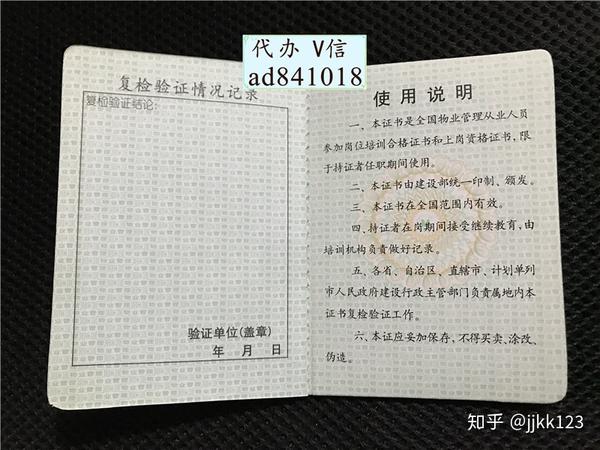 代办 V信
ad841018
复检验证情况记录
复检验证结论:
验证单位(盖章)
年 月 日
使用说明
一、本证书是全国物业管理从业人员
参加岗位培训合格证书和上岗资格证书,限
于持证者任职期间使用。
二、本证书由建设部统一印制、颁发。
三、本证书在全国范围内有效。
四、持证者在岗期间接受继续教育,由
培训机构负责做好记录。
五、各省、自治区、直辖市、计划单列
市人民政府建设行政主管部门负责属地内本
证书复检验证工作。
六、本证应妥加保存,不得买卖、涂改、
伪造。
知乎 @jjkk123